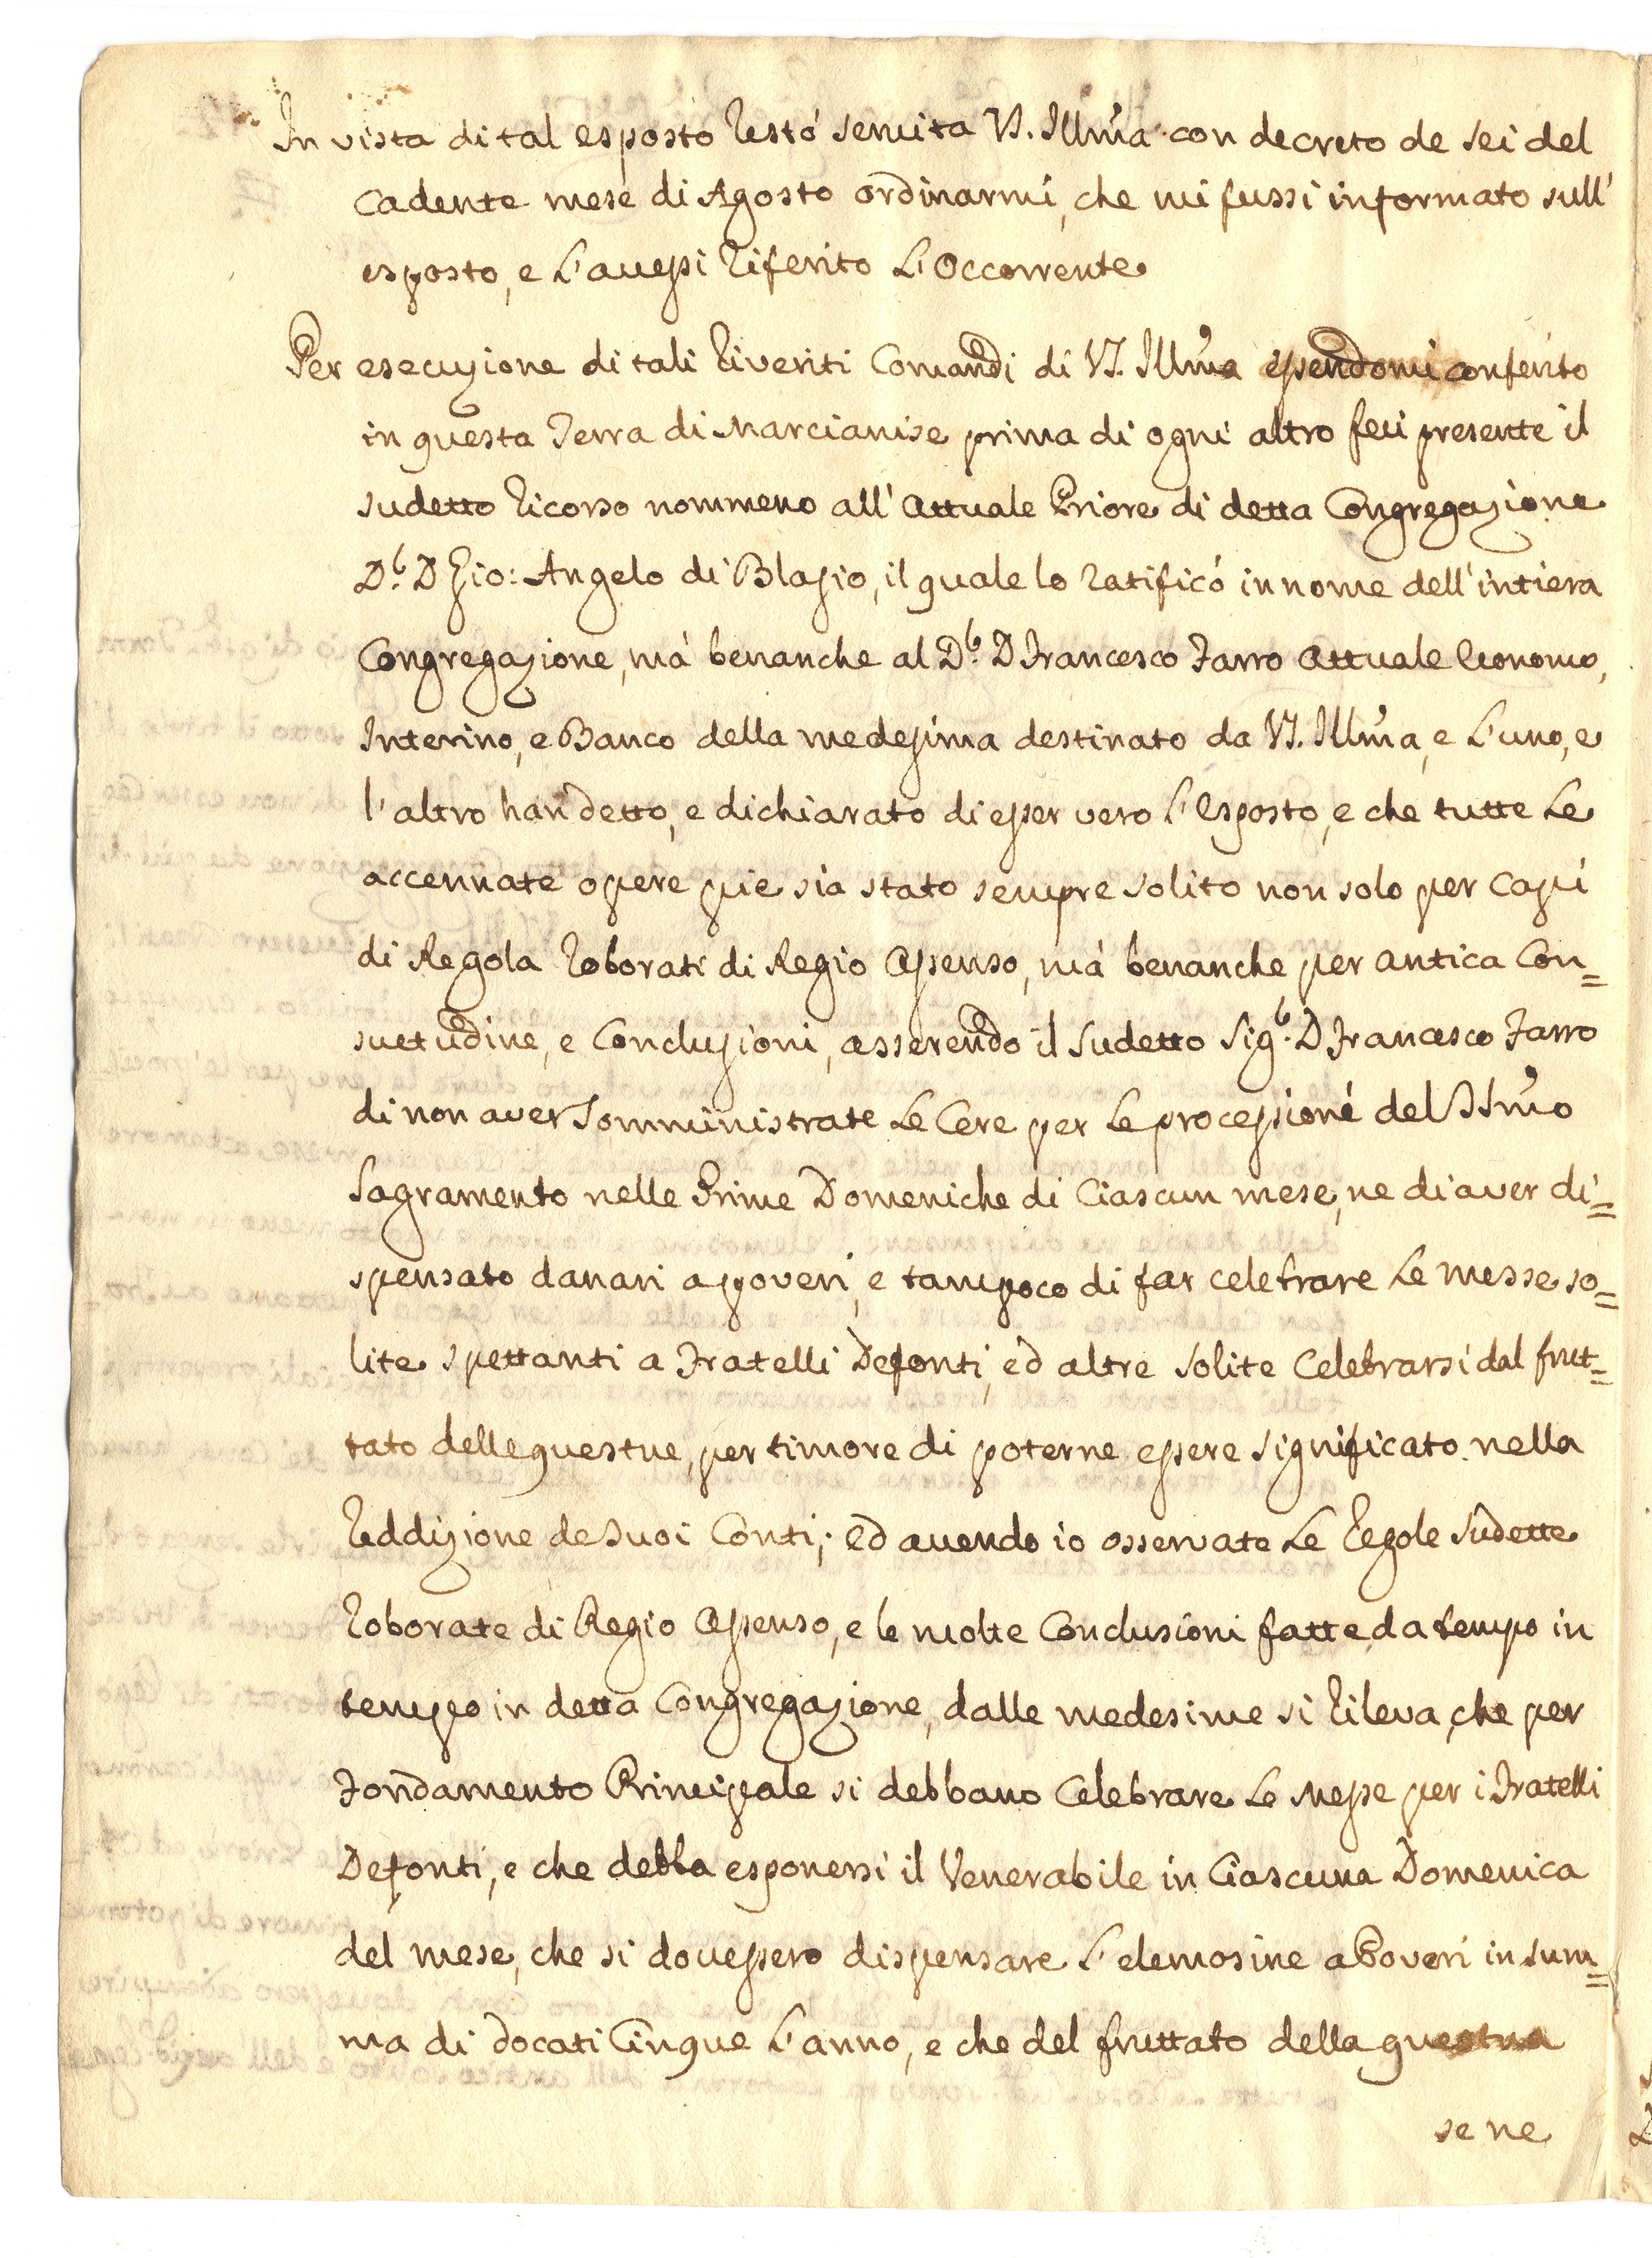 In vista di tal esposto restó servita V.S. Illm̃a con decreto de sei del
cadente mese di Agosto ordinarmi, che mi fussi informato sull'
esposto, e l'avessi riferito l'occorrente
Per esecuzione di tali riveriti Comandi di V.S. Illm̃a essendomi conferito
in questa Terra di Marcianise prima di ogni altro feci presente il
sudetto ricorso nommeno all'attuale Priore di detta Congregazione
D.r D Gio: Angelo di Blasio, il quale lo ratificó in nome dell'intiera
Congregazione, má benanche al D.r D Francesco Farro attuale Economo,
Interino, e Banco della medesima destinato da V.S. Illm̃a, e l'uno, e
l'altro han detto, e dichiarato di esser vero l'esposto, e che tutte le
accennate opere pie sia stato sempre solito non solo per capi
di Regola roborati di Regio Assenso, má benanche per antica Con=
suetudine, e Conclusioni, asserendo il sudetto Sig.r D Francesco Farro
di non aver somministrate le Cere per le processioni del SSm̃o
Sagramento nelle Prime Domeniche di Ciascun mese, ne di aver di=
spensato danari a poveri, e tampoco di far celebrare le messe so=
lite spettanti a Fratelli Defonti, ed altre solite celebrarsi dal frut=
tato delle questue, per timore di poterne essere significato nella
reddizione de suoi Conti; ed avendo io osservate le regole sudette
roborate di Regio Assenso, e le molte Conclusioni fatte da tempo in
tempo in detta Congregazione, dalle medesime si rileva, che per
Fondamento Principale si debbano Celebrare le Messe per i Fratelli
Defonti, e che debba esponersi il Venerabile in Ciascuna Domenica
del mese, che si dovessero dispensare l'elemosine a Poveri in sum=
ma di docati Cinque l'anno, e che del fruttato della questua
se ne